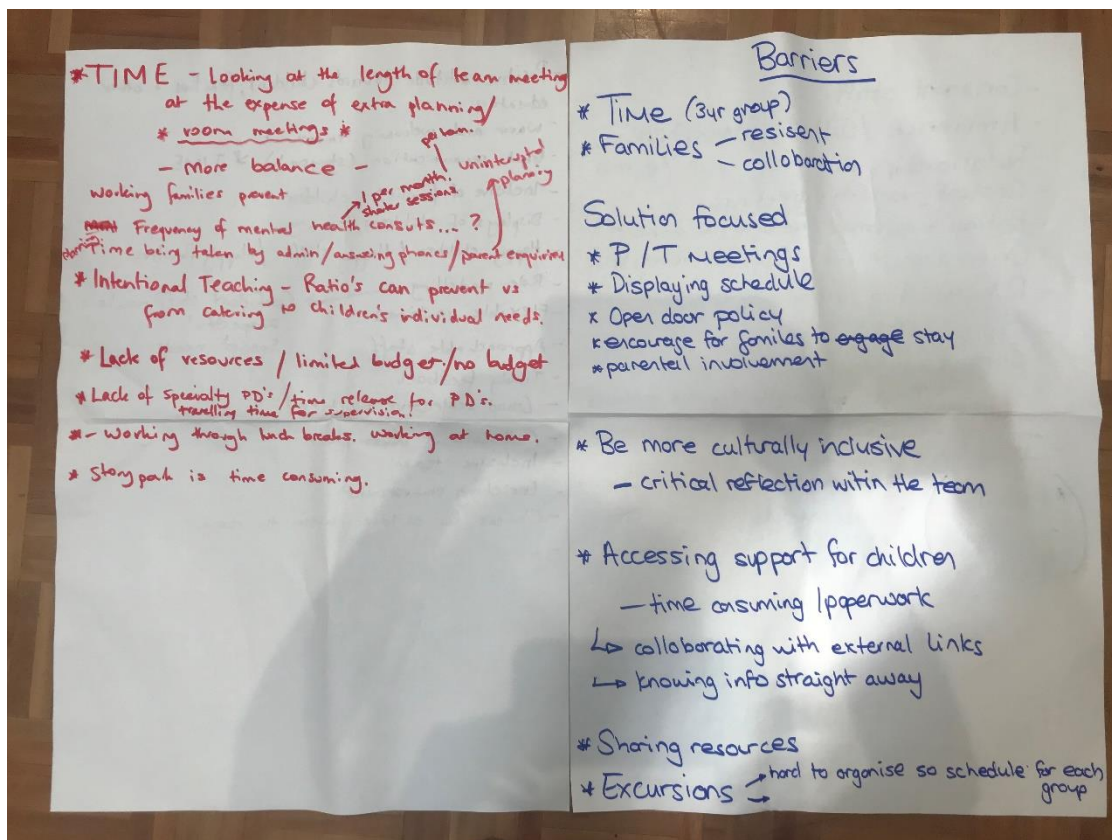 *TIME - Looking at the length of team meeting
at the expense of extra planning/
* room meetings *
- more balance -
uninterupted
planning
working families prevent
1 per month.
shorter sessions
Frequency of mental health consuts... ?
Time being taken by admin/answering phones/parent enquiries
* Intentional Teaching - Ratio's can prevent us
from catering to children's individual needs.
* Lack of resources / limited budget/no budget
* Lack of Specialty PD's / time release for PD's.
travelling time for supervision!
*- Working through lunch breaks. working at home.
* Storypark is time consuming.
Barriers
* Time (3yr group)
* Families - resisent
- collaboration
Solution focused
* P/T Meetings
* Displaying schedule
* Open door policy
* encourage for familes to engage stay
* parentel involvement
* Be more culturally inclusive
- critical reflection witin the team
* Accessing support for children
- time consuming /paperwork
↳ collaborating with external links
↳ knowing info straight away
* Sharing resources
* Excursions → hard to organise so schedule for each
group
→